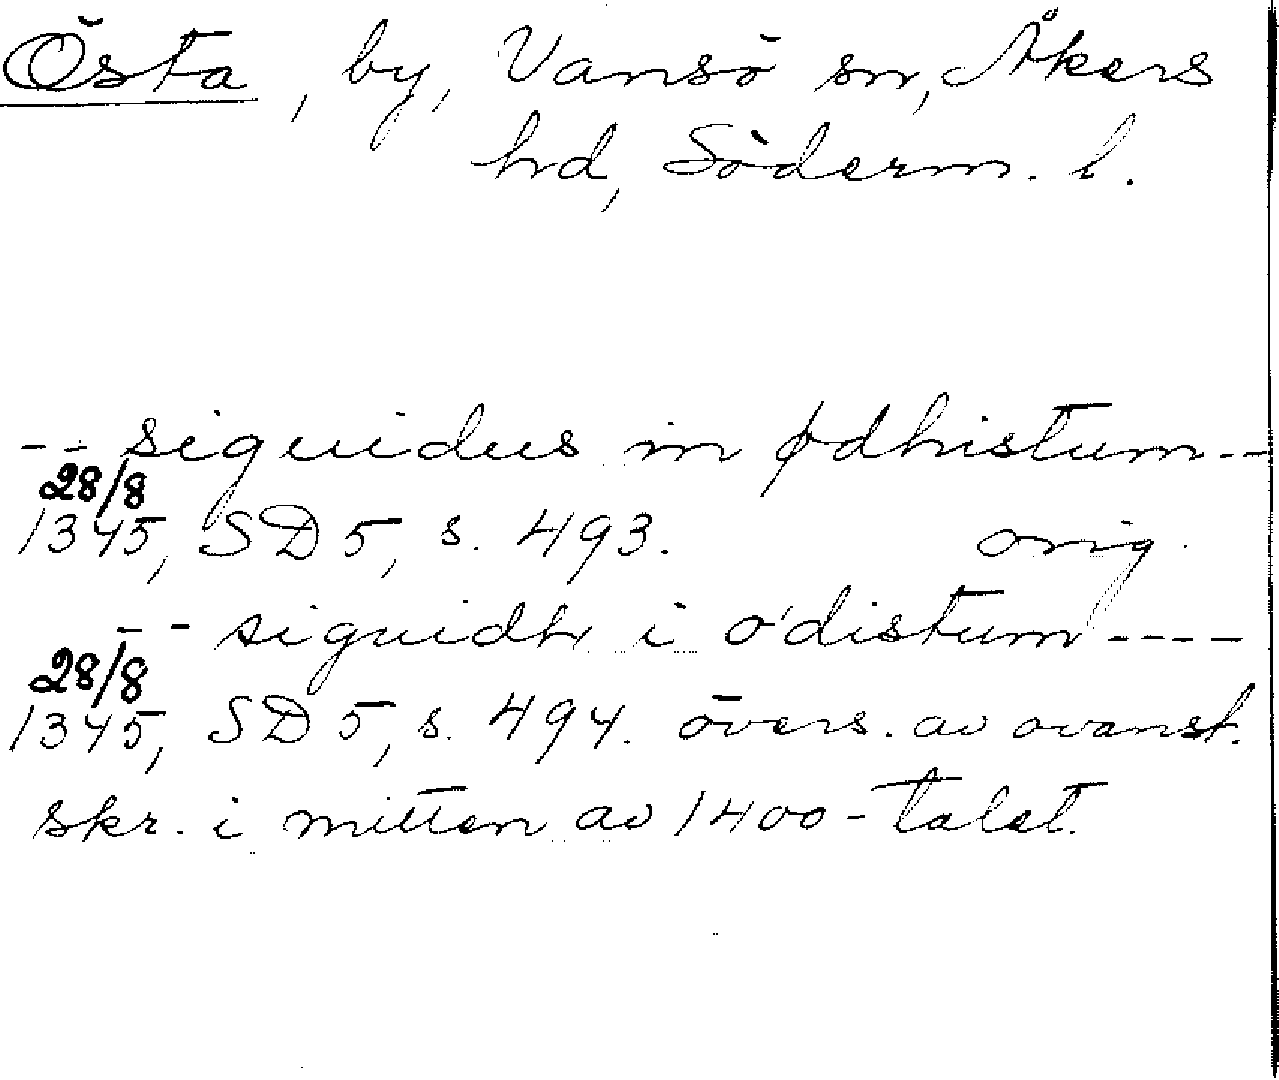 Östa, by, Vansö sn, Åkers
hd, Söderm. l.
-- siguidus in ødhistum --
28/8
1345, SD 5, s. 493. orig.
-- siguidh i ödistum ----
28/8
1345, SD 5, s. 494. övers. av ovanst.
skr. i mitten av 1400-talet.